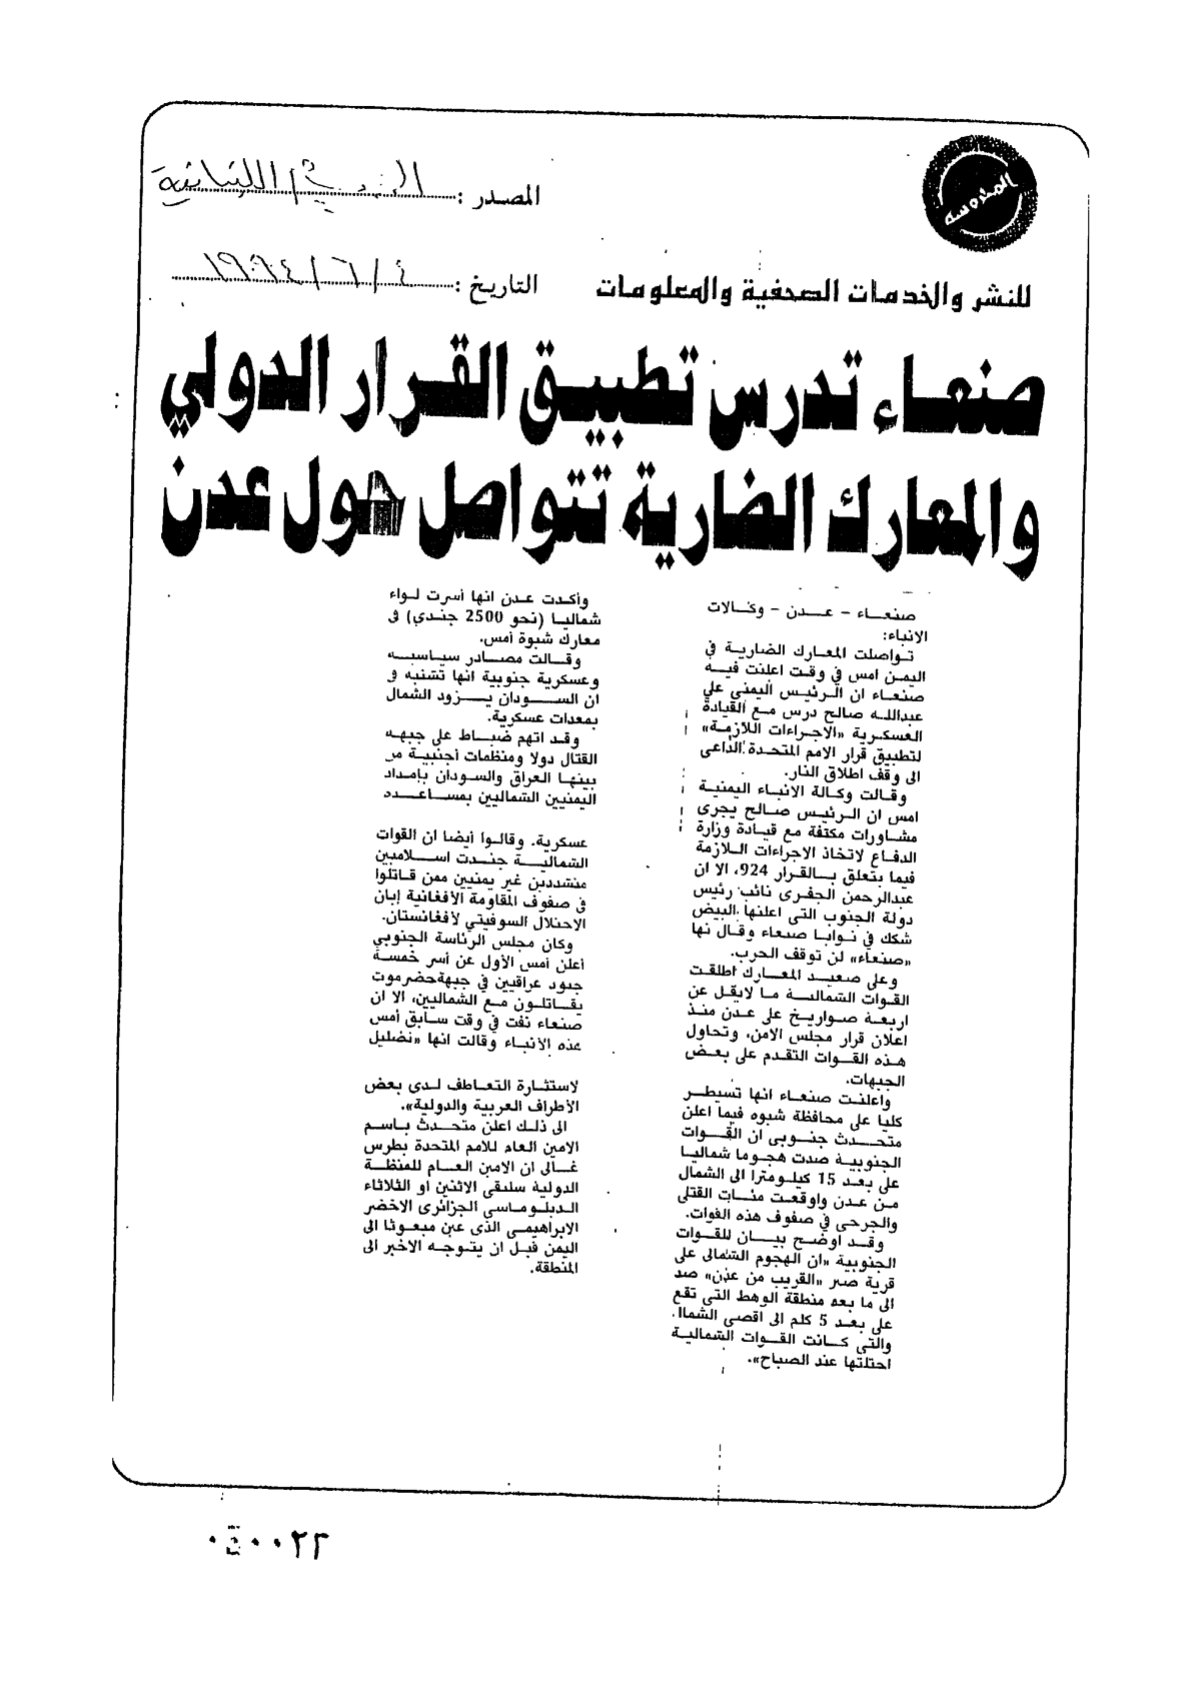 المدوسه
المصدر : اللبنانية
للنشر والخدمات الصحفية والمعلومات
التاريخ : ٤ / ٦ / ١٩٩٤
صنعاء تدرس تطبيق القرار الدولي
والمعارك الضارية تتواصل حول عدن
صنعاء - عدن - وكالات
الانباء:
تواصلت المعارك الضارية في
اليمن امس في وقت اعلنت فيه
صنعاء ان الرئيس اليمني علي
عبدالله صالح درس مع القيادة
العسكرية «الاجراءات اللازمة»
لتطبيق قرار الامم المتحدة الداعى
الى وقف اطلاق النار.
وقالت وكالة الانباء اليمنية
امس ان الرئيس صالح يجرى
مشاورات مكثفة مع قيادة وزارة
الدفاع لاتخاذ الاجراءات اللازمة
فيما يتعلق بالقرار 924، الا ان
عبدالرحمن الجفرى نائب رئيس
دولة الجنوب التى اعلنها البيض
شكك في نوايا صنعاء وقال نها
«صنعاء» لن توقف الحرب.
وعلى صعيد المعارك اطلقت
القوات الشمالية ما لايقل عن
اربعة صواريخ على عدن منذ
اعلان قرار مجلس الامن، وتحاول
هذه القوات التقدم على بعض
الجبهات.
واعلنت صنعاء انها تسيطر
كليا على محافظة شبوه فيما اعلن
متحدث جنوبى ان القوات
الجنوبية صدت هجوما شماليا
على بعد 15 كيلومترا الى الشمال
من عدن واوقعت مئات القتلى
والجرحى في صفوف هذه القوات.
وقد اوضح بيان للقوات
الجنوبية «ان الهجوم الشمالى على
قرية صبر «القريب من عدن» صد
الى ما بعد منطقة الوهط التى تقع
على بعد 5 كلم الى اقصى الشمال
والتى كانت القوات الشمالية
احتلتها عند الصباح».
وأكدت عدن انها أسرت لواء
شماليا (نحو 2500 جندي) فى
معارك شبوة أمس.
وقالت مصادر سياسيه
وعسكرية جنوبية انها تشتبه و
ان السودان يزود الشمال
بمعدات عسكرية.
وقد اتهم ضباط على جبهه
القتال دولا ومنظمات أجنبية من
بينها العراق والسودان بإمداد
اليمنيين الشماليين بمساعده
عسكرية. وقالوا أيضا ان القوات
الشمالية جندت اسلاميين
متشددين غير يمنيين ممن قاتلوا
فى صفوف المقاومة الأفغانية إبان
الاحتلال السوفيتي لأفغانستان.
وكان مجلس الرئاسة الجنوبي
أعلن أمس الأول عن أسر خمسة
جنود عراقيين في جبهة حضرموت
يقاتلون مع الشماليين، الا ان
صنعاء نفت في وقت سابق أمس
هذه الأنباء وقالت انها «تضليل
لاستثارة التعاطف لدى بعض
الأطراف العربية والدولية».
الى ذلك اعلن متحدث باسم
الامين العام للامم المتحدة بطرس
غالى ان الامين العام للمنظمة
الدولية سيلتقى الاثنين أو الثلاثاء
الدبلوماسى الجزائرى الاخضر
الابراهيمى الذى عين مبعوثا الى
اليمن قبل ان يتوجه الاخير الى
المنطقة.